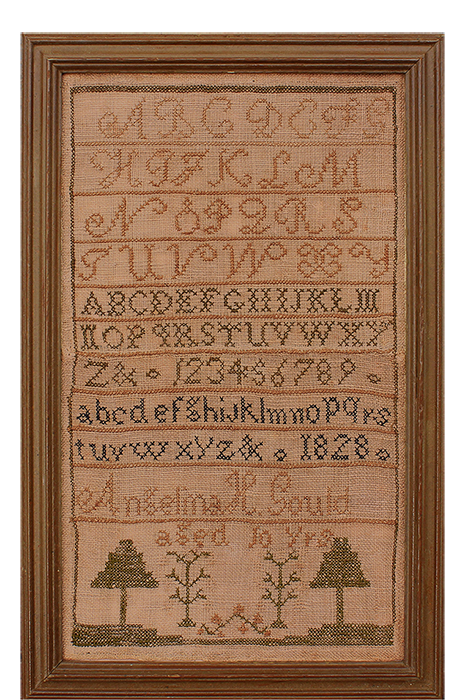 A B C D E F G
H I J K L M
N O P Q R S
T U V W X Y
ABCDEFGHIJKLM
NOPQRSTUVWXY
Z& 123456789
abcdefghijklmnopqrs
tuvwxyz& 1828
Angelina H. Gould
aged 10 Yrs